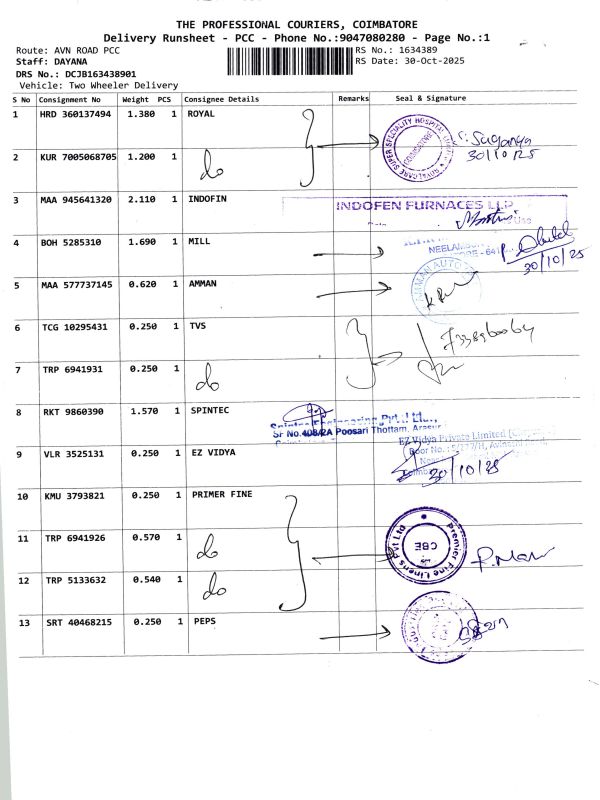 THE PROFESSIONAL COURIERS, COIMBATORE
Delivery Runsheet - PCC - Phone No.:9047080280 - Page No.:1
Route: AVN ROAD PCC RS No.: 1634389
Staff: DAYANA RS Date: 30-Oct-2025
DRS No.: DCJB163438901
Vehicle: Two Wheeler Delivery
S No Consignment No Weight PCS Consignee Details Remarks Seal & Signature
1 HRD 360137494 1.380 1 ROYAL
S. Suganya
30/10/25
2 KUR 7005068705 1.200 1 do
3 MAA 945641320 2.110 1 INDOFIN
INDOFEN FURNACES LLP
4 BOH 5285310 1.690 1 MILL
30/10/25
5 MAA 577737145 0.620 1 AMMAN
6 TCG 10295431 0.250 1 TVS
7 TRP 6941931 0.250 1 do
8 RKT 9860390 1.570 1 SPINTEC
SF No.408/2A Poosari Thottam, Arasur
9 VLR 3525131 0.250 1 EZ VIDYA
EZ Vidya Private Limited
30/10/25
10 KMU 3793821 0.250 1 PRIMER FINE
11 TRP 6941926 0.570 1 do
Premier Fine Linens Pvt Ltd
CBE
12 TRP 5133632 0.540 1 do
13 SRT 40468215 0.250 1 PEPS